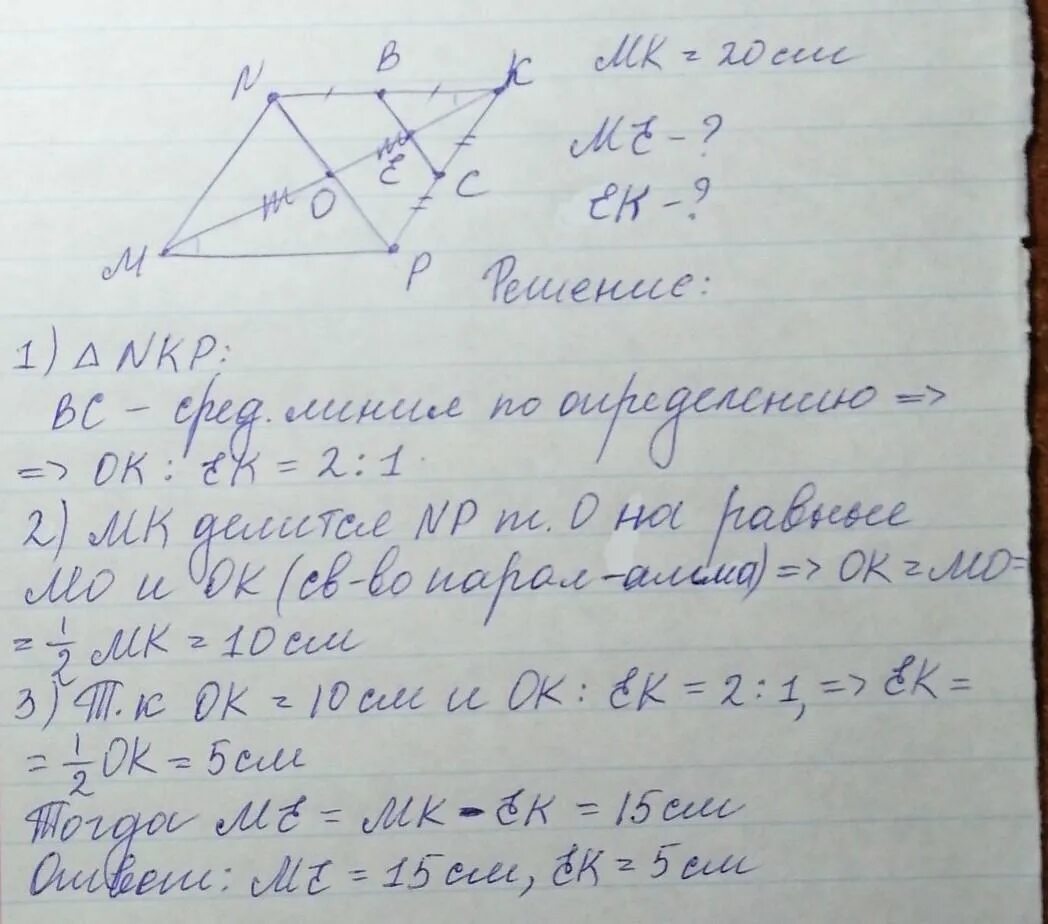 N B K MK = 20 см
ME - ?
O E C EK - ?
M P Решение:
1) △ NKP:
BC - сред. линия по определению =>
=> OK : EK = 2 : 1
2) MK делится NP т. O на равные
MO и OK (св-во парал-амма) => OK = MO =
= 1/2 MK = 10 см
3) Т.к OK = 10 см и OK : EK = 2 : 1, => EK =
= 1/2 OK = 5 см
Тогда ME = MK - EK = 15 см
Ответ: ME = 15 см, EK = 5 см